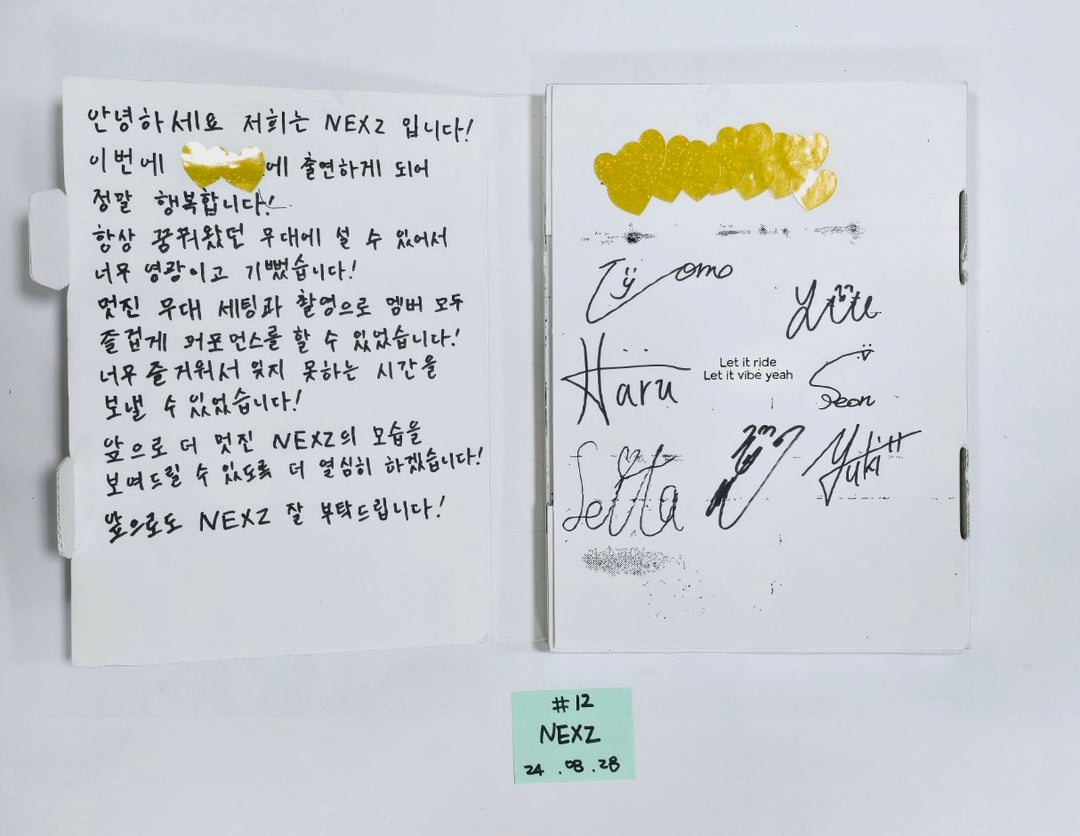 안녕하세요 저희는 NEXZ 입니다!
이번에 에 출연하게 되어
정말 행복합니다!
항상 꿈꿔왔던 무대에 설 수 있어서
너무 영광이고 기뻤습니다!
멋진 무대 세팅과 촬영으로 멤버 모두
즐겁게 퍼포먼스를 할 수 있었습니다!
너무 즐거워서 잊지 못하는 시간을
보낼 수 있었습니다!
앞으로 더 멋진 NEXZ의 모습을
보여드릴 수 있도록 더 열심히 하겠습니다!
앞으로도 NEXZ 잘 부탁드립니다!
Tomo
Haru
Let it ride
Let it vibe yeah
Seita
Yuki
#12
NEXZ
24.08.28